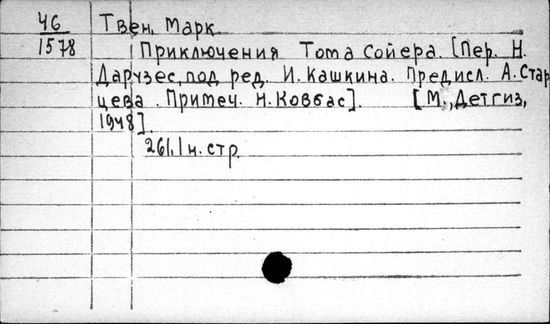 46
1578
Твен, Марк.
Приключения Тома Сойера. [Пер. Н.
Дарузес, под ред. И. Кашкина. Предисл. А. Стар
цева. Примеч. Н. Ковбас]. [М., Детгиз,
1948].
261, 1 н. стр.